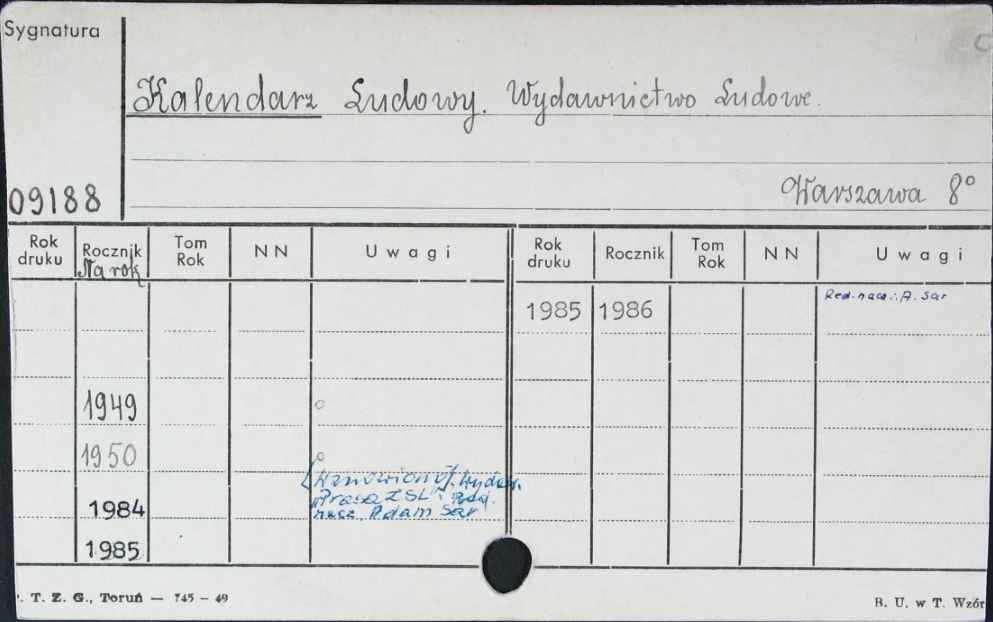 Sygnatura
C
Kalendarz Ludowy. Wydawnictwo Ludowe.
Warszawa 8°
09188
Rok druku Rocznik Tom Rok N N U w a g i Rok druku Rocznik Tom Rok N N U w a g i
Na rok
1985 1986 Red. nacz.: A. Sar
1949 o
1950 o
[Wznowiono]. Wydaw.
1984 "Prasa ZSL".
nacz. Adam Sar
1985
. T. Z. G., Toruń — 745 – 49
B. U. w T. Wzór